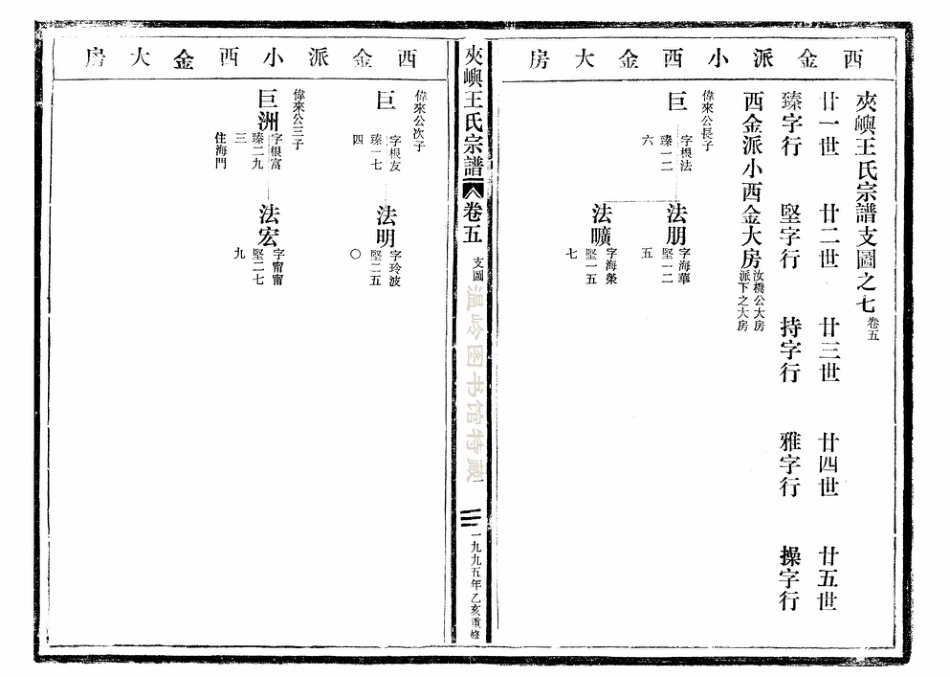 西金派小西金大房
夾嶼王氏宗譜支圖之七 卷五
廿一世 廿二世 廿三世 廿四世 廿五世
臻字行 堅字行 持字行 雅字行 操字行
西金派小西金大房 汝橋公大房派下之大房
偉來公長子
巨 字根法 臻一二六
法朋 字海華 堅一二五
法曠 字海榮 堅一五七
夾嶼王氏宗譜 卷五 支圖
温岭图书馆特藏
三 一九九五年乙亥重修
西金派小西金大房
偉來公次子
巨 字根友 臻一七四
法明 字玲波 堅二五〇
偉來公三子
巨洲 字根富 臻二九三 住海門
法宏 字甯甯 堅二七九